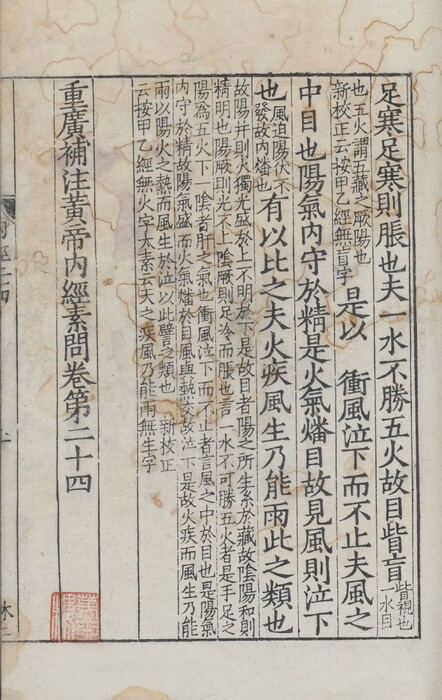 足寒足寒則脹也夫一水不勝五火故目眥盲
眥視也
一水目
也五火謂五藏之厥陽也
新校正云按甲乙經無盲字
是以　衝風泣下而不止夫風之
中目也陽氣內守於精是火氣燔目故見風則泣下
也
風迫陽伏不
發故內燔也
有以比之夫火疾風生乃能雨此之類也
故陽并則火獨光盛於上不明於下是故目者陽之所生系於藏故陰陽和則
精明也陽厥則光不上陰厥則足冷而脹也言一水不可勝五火者是手足之
陽為五火下一陰者肝之氣也衝風泣下而不止者言風之中於目也是陽氣
內守於精故陽氣盛而火氣燔於目風與熱交故泣下是故火疾而風生乃能
雨以陽火之熱而風生於泣以此譬之類也　新校正
云按甲乙經無火字太素云天之疾風乃能雨無生字
重廣補注黃帝內經素問卷第二十四